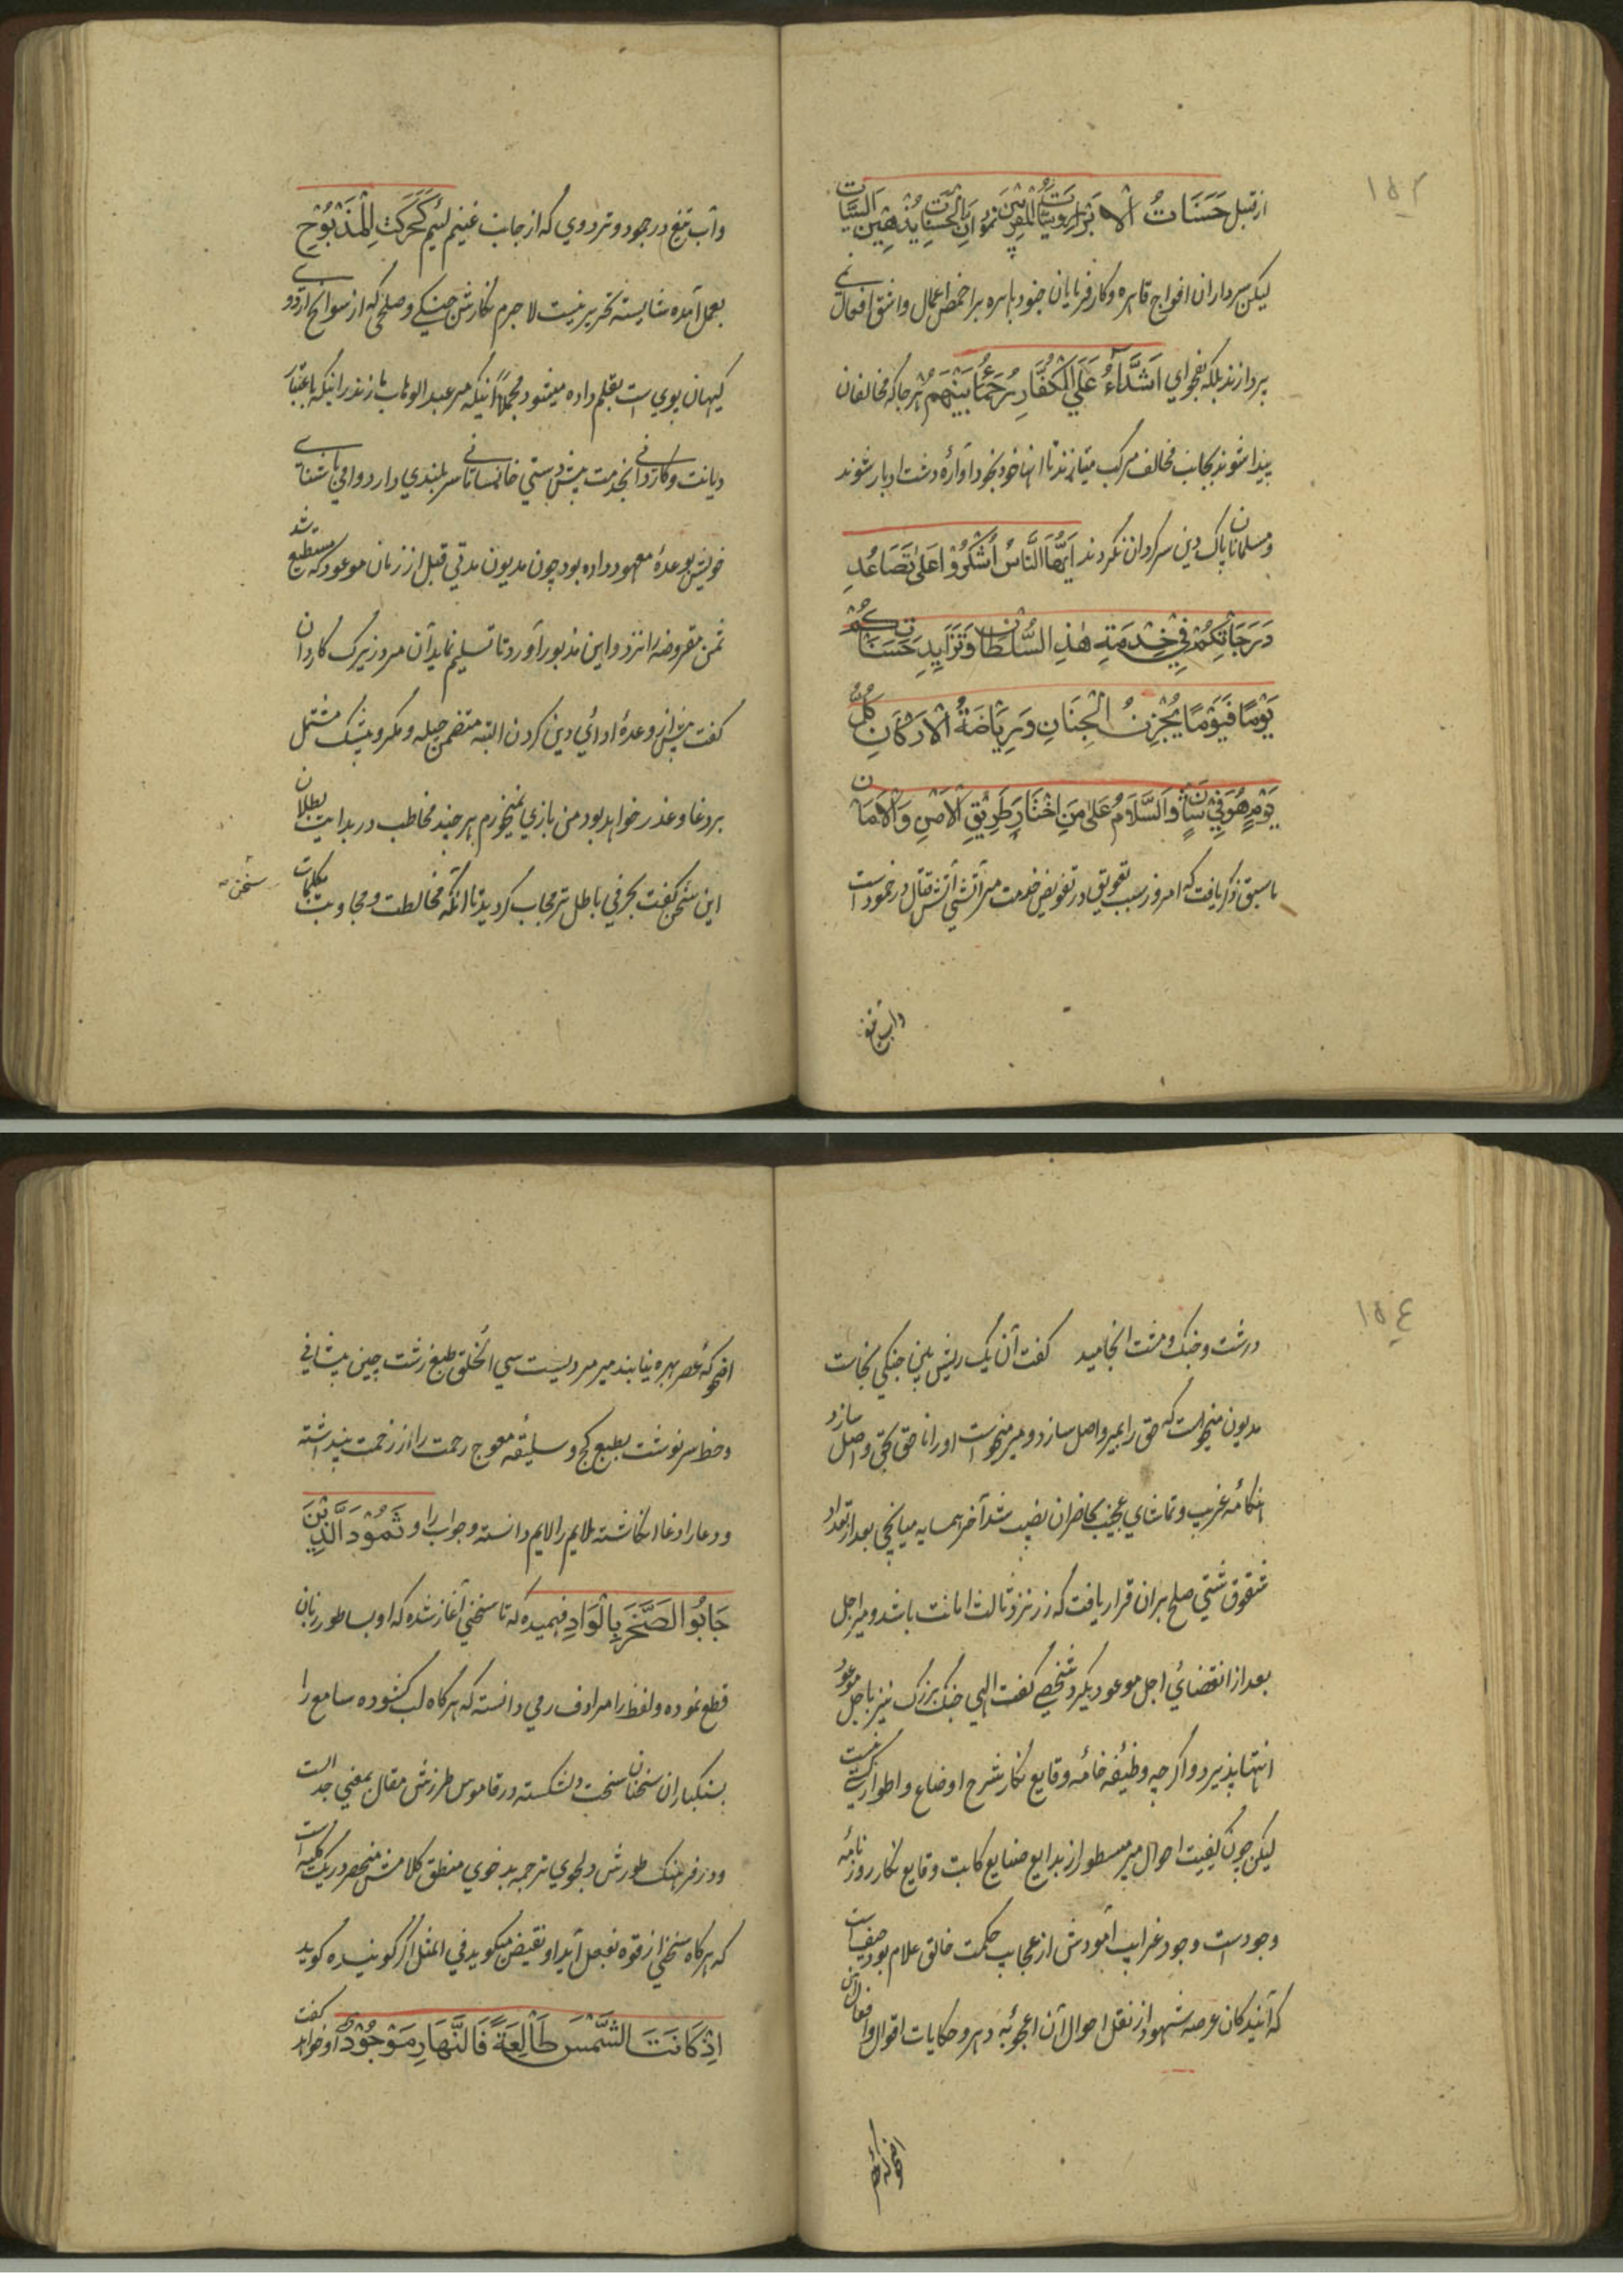 ١٥٣
از قبیل حَسَنَاتُ الْاَبْرَارِ سَیِّاٰتُ الْمُقَرَّبِیْنَ نمود اِنَّ الْحَسَنَاتِ یُذْهِبْنَ السَّیِّاٰتِ
لیکن سرداران افواج قاهره و کارفرمایان جنود باهره بر اغمض اعمال و اشق افعال نمی
پردازند بلکه بفحوای اَشِدَّاءُ عَلَی الْکُفَّارِ رُحَمَاءُ بَیْنَهُمْ هر جا که مخالفان
پیدا شوند بجانب مخالف مرکب میتازند تا انها خود بخود آواره دشت ادبار شوند
و مسلمانان پاک دین سرگردان نگردند اَیُّهَا النَّاسُ اُشْکُرُوْا عَلٰی تَصَاعُدِ
دَرَجَاتِکُمْ فِیْ خِدْمَةِ هٰذِ السُّلْطَانِ وَتَزَایِدِ حَسَنَاتِکُمْ
یَوْمًا فَیَوْمًا بِحُزْنِ الْجِنَانِ وَرِیَاضَةُ الْاَرْکَانِ کُلَّ
یَوْمٍ هُوَ فِیْ شَانٍ وَالسَّلَامُ عَلٰی مَنِ اخْتَارَ طَرِیْقِ الْاَمْنِ وَالْاَمَانِ
ما سبق ذکر یافت که امروز بسبب تعویق در تفویض خدمت میر آتشی آتش قتال در خمود است
و آب تیغ
و آب تیغ در جمود و ترددی که از جانب غنیم لئیم کَحَرَکَتِ الْمَذْبُوْحِ
بعمل آمده شایسته تحریر نیست لا جرم نگارش جنگی و صلحی که از سوانح اردوی
کیهان پوی است بقلم داده میشود مجملاً انیکه میر عبد الوهاب بازندرانیکه باعتبار
دیانت و کاردانی بخدمت پیش دستی خانسامانی سر بلندی دارد وامی باشنای
خویش بوعدهٔ معهود داده بود چون مدیون مدتی قبل از زمان موعود که مستطیع شد
ثمن مقروضه را نزد و این مذبور آورد تا تسلیم نماید آن مرد زیرک کاردان
گفت پیش از وعدهٔ ادائی دین کردن البته متضمن حیله و مکر و بیشک مشتمل
بر دغا و غدر خواهد بود من بازی نمیخورم هر چند مخاطب در بدایت بطلان
این سخن گفت بحرفی باطل تر مجاب گردید تا آنکه مخالطت و مجاوبت بکلمات
سخن
١٥٤
درشت و جنگ و مشت انجامید گفت آن یک ریش بین جنگی نجاست
مدیون میخواست که حق را بمیر واصل سازد و میر میخواست او را ناحق بحق واصل سازد
هنگامه غریب و تماشای عجیب بحاضران نصیب شد آخر همسایه میانجی بعد از تعداد
شقوق شتی صلح بران قرار یافت که زر نزد ثالث امانت باشد و میر اجل
بعد از انقضائی اجل موعود بگیرد شخصی گفت الهی جنگ بزرگ نیز باجل موعود
انتها پذیرد و اگرچه وظیفه خامه وقایع نگار شرح اوضاع و اطوار کسی نیست
لیکن چون کیفیت احوال میر مسطور از بدایع صنایع کابت وقایع نگار روز نامه
وجود است وجود غرایب آمودش از عجایب حکمت خالق علام بود حیف است
که آیندگان عرصه شهود از نقل احوال آن اعجوبه دهر و حکایات اقوال و افعال آن
اضحوکه عصر
اضحوکهٔ عصر بهره نیابند میر مردیست سیئ الخلق طبع زشت چین پیشانی
و خط سرنوشت بطبع کج و سلیقه معوج رحمت را از زحمت پنداشته
و دعا را دغا انگاشته ملایم را لایم دانسته و جواب را و ثَمُوْدَ الَّذِیْنَ
جَابُوا الصَّخْرَ بِالْوَادِ فهمیده که تا سخنی آغاز شده که او بساطور زبان
قطع نموده و لفظ را مرادف رمی دانسته که هر گاه لب کشوده سامع را
بسنگباران سخنان سخت دلشکسته در قاموس طرزش مقال بمعنی جدالست
و در فرهنگ طورش دلجوی ترجمه بدخوی منطق کلامش منحصر در یک کلمه است
که هر گاه سخنی از قوه بفعل آید او نقیض میگوید فی المثل اگر گوینده گوید
اِذْ کَانَتَ الشَّمْسَ طَالِعَةً فَالنَّهَارِ مَوْجُوْدٌ او خواهد گفت